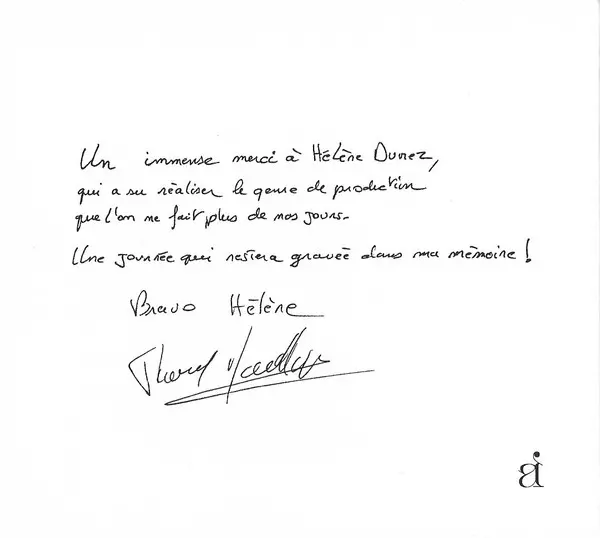 Un immense merci à Hélène Durez,
qui a su réaliser le genre de production
que l'on ne fait plus de nos jours.
Une journée qui restera gravée dans ma mémoire !
Bravo Hélène